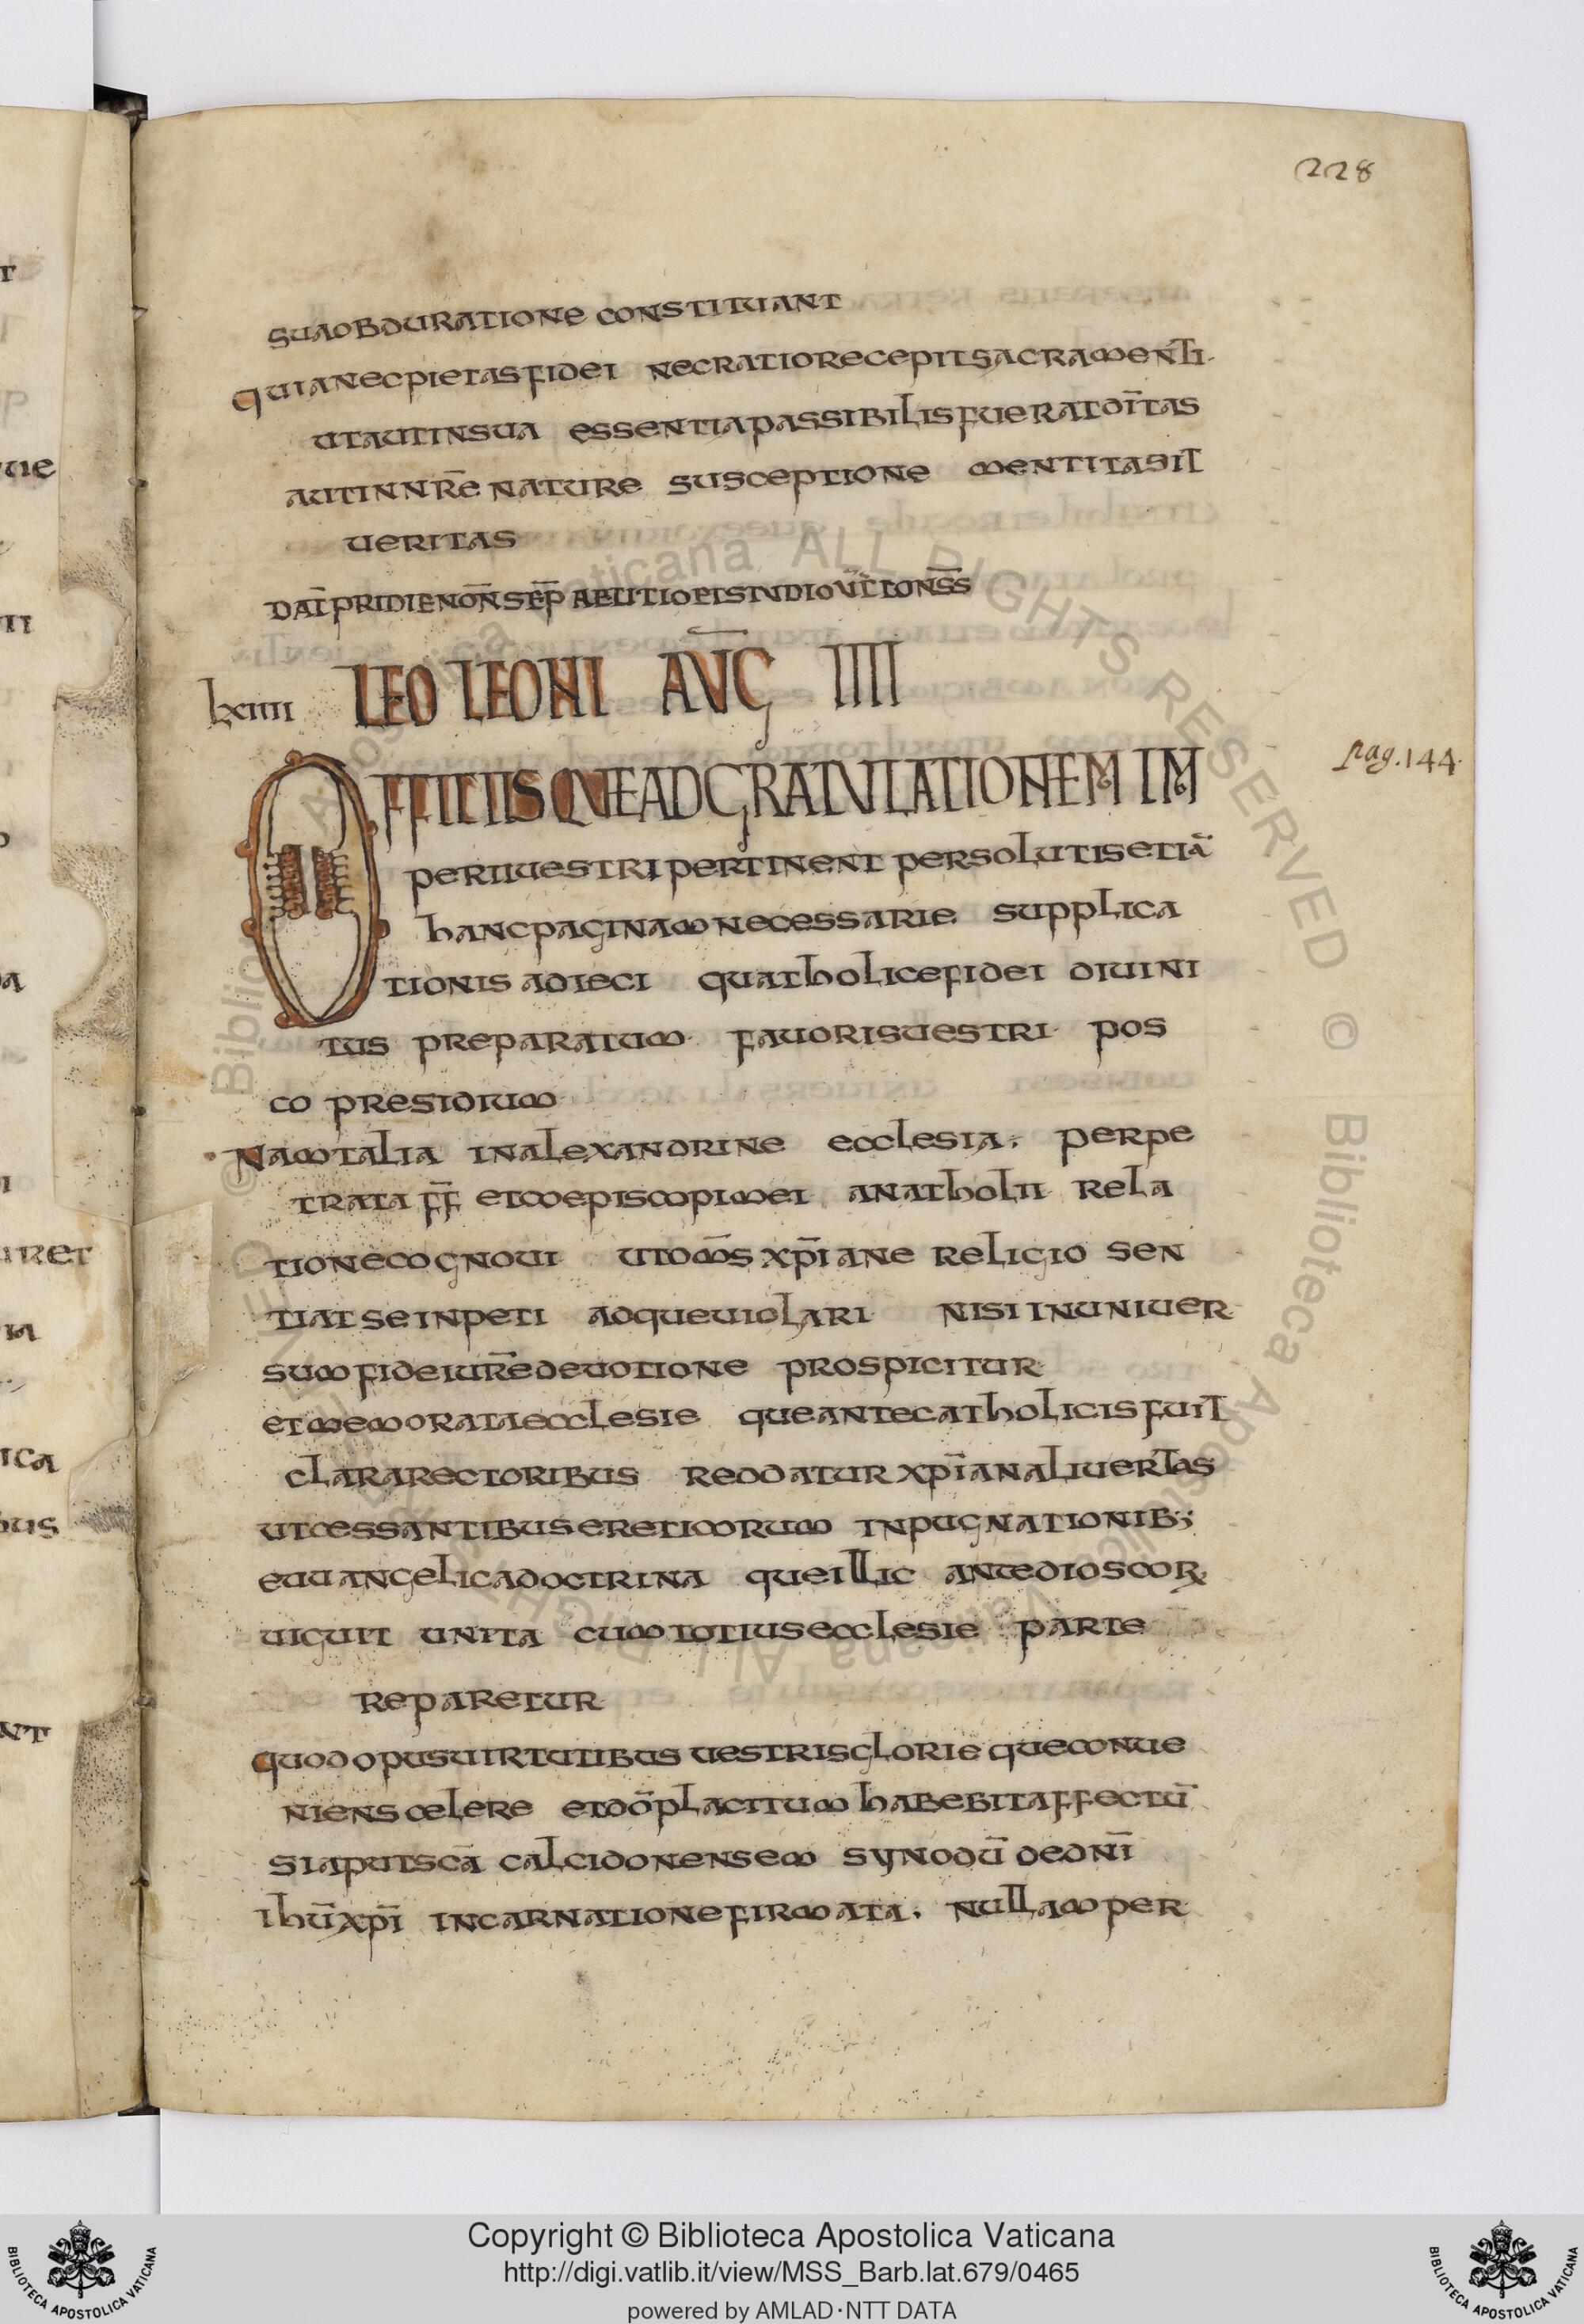 228
suaobduratione constituant
quianecpietasfidei necratiorecepitsacramenti·
utautinsua essentiapassibilisfueratdiītas
autinnr̄e nature susceptione mentitasit
ueritas
dat̄pridienon̄sep̄ abutioetstudiovc̄cons̄s̄
lxiiii LEO LEONI AVḠ IIII
OFFICIISQUEADGRATVLATIONEM IM
periiuestripertinent persolutisetiā
hancpaginamnecessarie supplica
tionis adieci quatholicefidei diuini
tus preparatum· fauorisuestri· pos
co presidium
Namtalia inalexandrine ecclesia. perpe
trata f̄f̄ etcoepiscopimei anatholii rela
tionecognoui utom̄s xp̄iane religio sen
tiatseinpeti adqueuiolari nisiinuniuer
sumfideiur̄edeuotione prospicitur
etmemorataecclesie queantecatholicisfuit
clararectoribus reddatur xp̄ianaliuertas
utcessantibusereticorum inpugnationib;
euuangelicadoctrina queillic antedioscor
uiguit unita cumtotiusecclesie parte
reparetur·
quodopusuirtutibus uestrisglorie queconue
niens celere etdō placitum habebitaffectū
siaputscā calcidonensem synodū dedn̄i
ihū xp̄i incarnationefirmata. nullamper
pag.144·
Copyright © Biblioteca Apostolica Vaticana
http://digi.vatlib.it/view/MSS_Barb.lat.679/0465
powered by AMLAD·NTT DATA